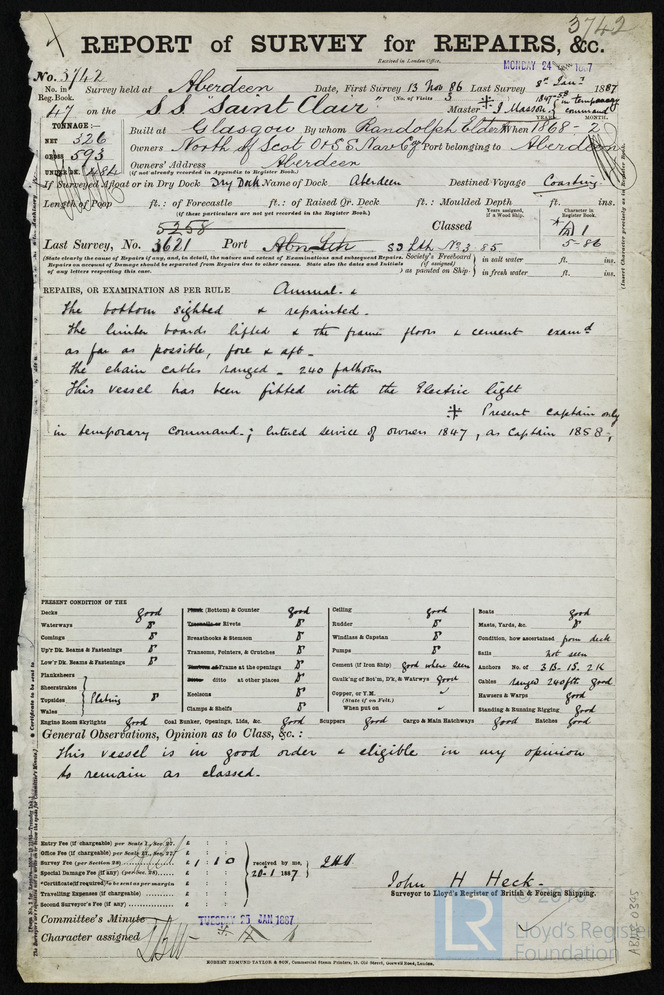 3742
REPORT of SURVEY for REPAIRS, &c.
Received in London Office,
MONDAY 24 JAN 1887
No. 3742
No. in Reg. Book.
Survey held at Aberdeen Date, First Survey 13 Nov 86 Last Survey 8th Jany 1887
(No. of Visits 3
47 on the S.S. "Saint Clair" Master J Masson 1847-58 in temporary command
YEAR. MONTH.
TONNAGE:—
NET 526
GROSS 593
UNDER DK. 484
Built at Glasgow By whom Randolph Elder When 1868 - 2
Owners North of Scot Or & S Nav Coy Port belonging to Aberdeen
Owners' Address Aberdeen
(if not already recorded in Appendix to Register Book.)
If Surveyed Afloat or in Dry Dock Dry Dock Name of Dock Aberdeen Destined Voyage Coasting
Length of Poop ft.: of Forecastle ft.: of Raised Qr. Deck ft.: Moulded Depth ft. ins.
(if these particulars are not yet recorded in the Register Book.)
Years assigned, if a Wood Ship.
Character in Register Book.
5258
Classed A 1
Last Survey, No. 3621 Port Abn Lth SS Lth No 3 85 5-86
(State clearly the cause of Repairs if any, and, in detail, the nature and extent of Examinations and subsequent Repairs.
Repairs on account of Damage should be separated from Repairs due to other causes. State also the Dates and Initials
of any letters respecting this case.
Society's Freeboard (if assigned) as painted on Ship
in salt water ft. ins.
in fresh water ft. ins.
REPAIRS, OR EXAMINATION AS PER RULE Annual. &
The bottom sighted & repainted.
The limber boards lifted & the frame floors & cement examd
as far as possible, fore & aft.
The chain cables ranged - 240 fathoms
This vessel has been fitted with the Electric light
Present captain only
in temporary command.; Entered service of owners 1847, as Captain 1858;
PRESENT CONDITION OF THE
Decks good
Waterways "
Comings "
Up'r Dk. Beams & Fastenings "
Low'r Dk. Beams & Fastenings "
Planksheers
Sheerstrakes
Topsides
Wales
Plating "
Plank (Bottom) & Counter good
Treenails or Rivets "
Breasthooks & Stemson "
Transoms, Pointers, & Crutches "
Frame at the openings "
ditto at other places "
Keelsons "
Clamps & Shelfs "
Ceiling good
Rudder "
Windlass & Capstan "
Pumps "
Cement (if Iron Ship) good where seen
Caulk'ng of Bot'm, D'k, & Watrwys Good
Copper, or Y.M.
(State if on Felt.)
When put on
Boats good
Masts, Yards, &c. "
Condition, how ascertained from deck
Sails not seen
Anchors No. of 3 B. 1 S. 2 K
Cables ranged 240 fth good
Hawsers & Warps good
Standing & Running Rigging Good
Engine Room Skylights good Coal Bunker, Openings, Lids, &c. good Scuppers good Cargo & Main Hatchways Good Hatches good
General Observations, Opinion as to Class, &c.:
This vessel is in good order & eligible in my opinion
to remain as classed.
Entry Fee (if chargeable) per Scale I., Sec. 27. £ : :
Office Fee (if chargeable) per Scale II., Sec. 27. £ : :
Survey Fee (per Section 28) £ 1 : 1 : 0
Special Damage Fee (if any) (per Sec. 28) £ : :
*Certificate (if required) to be sent as per margin
Travelling Expenses (if chargeable) £ : :
Second Surveyor's Fee (if any) £ : :
received by me,
20-1 1887
John H Heck.
Surveyor to Lloyd's Register of British & Foreign Shipping.
Committee's Minute TUESDAY 25 JAN 1887
Character assigned
ROBERT EDMUND TAYLOR & SON, Commercial Steam Printers, 19, Old Street, Goswell Road, London.
LR
Lloyd's Register
Foundation